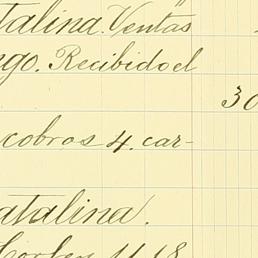 talina. Ventas
ngo. Recibido el
30
cobros 4. car-
atalina.